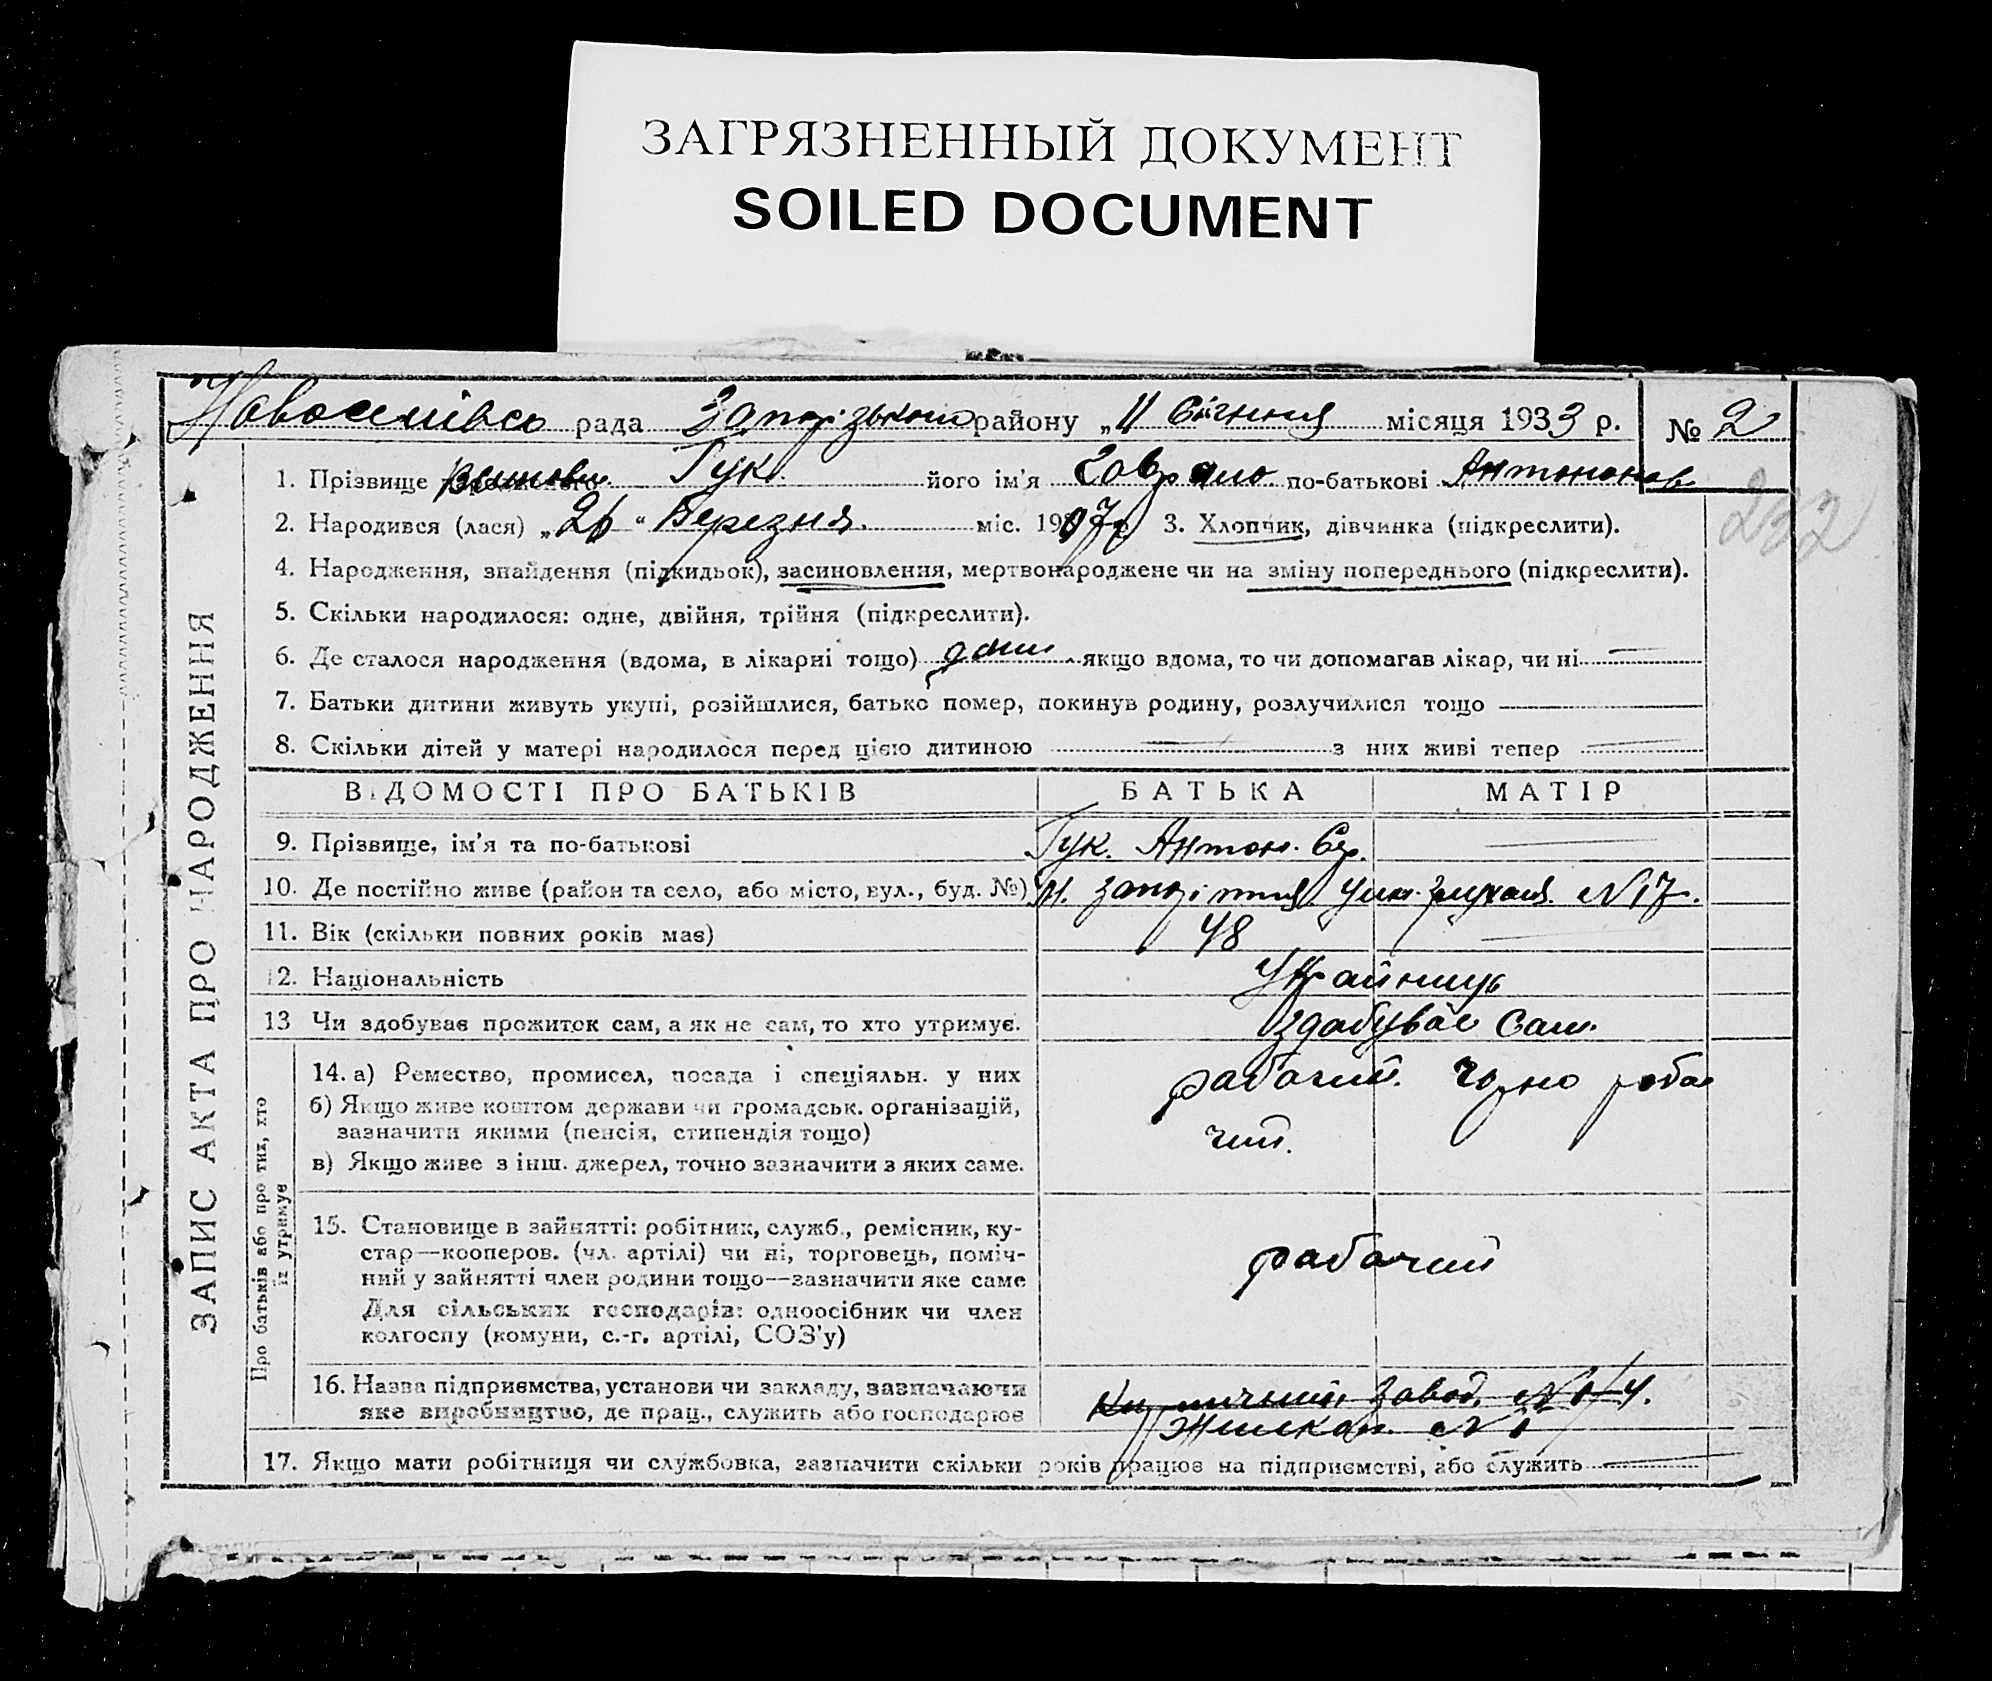 ЗАГРЯЗНЕННЫЙ ДОКУМЕНТ
SOILED DOCUMENT
рада Запорізького району „11 Січння місяця 1933 р. № 2
1. Прізвище Гук його ім'я по-батькові Антононов
232
2. Народився (лася) „26 “ Березня. міс. 1907р 3. Хлопчик, дівчинка (підкреслити).
4. Народження, знайдення (підкидьок), засиновлення, мертвонароджене чи на зміну попереднього (підкреслити).
5. Скільки народилося: одне, двійня, трійня (підкреслити).
6. Де сталося народження (вдома, в лікарні тощо) якщо вдома, то чи допомагав лікар, чи ні
7. Батьки дитини живуть укупі, розійшлися, батько помер, покинув родину, розлучилися тощо
8. Скільки дітей у матері народилося перед цією дитиною з них живі тепер
ЗАПИС АКТА ПРО НАРОДЖЕННЯ
ВІДОМОСТІ ПРО БАТЬКІВ БАТЬКА МАТІР
9. Прізвище, ім'я та по-батькові Гук. Антон.
10. Де постійно живе (район та село, або місто, вул., буд. №) №17.
11. Вік (скільки повних років має) 48
12. Національність Українць
13 Чи здобуває прожиток сам, а як не сам, то хто утримує. здобуває сам.
Про батьків або про тих, хто
їх утримує
14. а) Ремество, промисел, посада і спеціяльн. у них рабочий. чорно робо
б) Якщо живе коштом держави чи громадськ. організацій,
зазначити якими (пенсія, стипендія тощо) чий.
в) Якщо живе з інш. джерел, точно зазначити з яких саме.
15. Становище в зайнятті: робітник, служб., ремісник, ку-
стар—кооперов. (чл. артілі) чи ні, торговець, поміч-
ний у зайнятті член родини тощо—зазначити яке саме
рабочий
Для сільських господарів: одноосібник чи член
колгоспу (комуни, с.-г. артілі, СОЗ'у)
16. Назва підприємства, установи чи закладу, зазначаючи завод №
яке виробництво, де прац., служить або господарює
17. Якщо мати робітниця чи службовка, зазначити скільки років працює на підприємстві, або служить